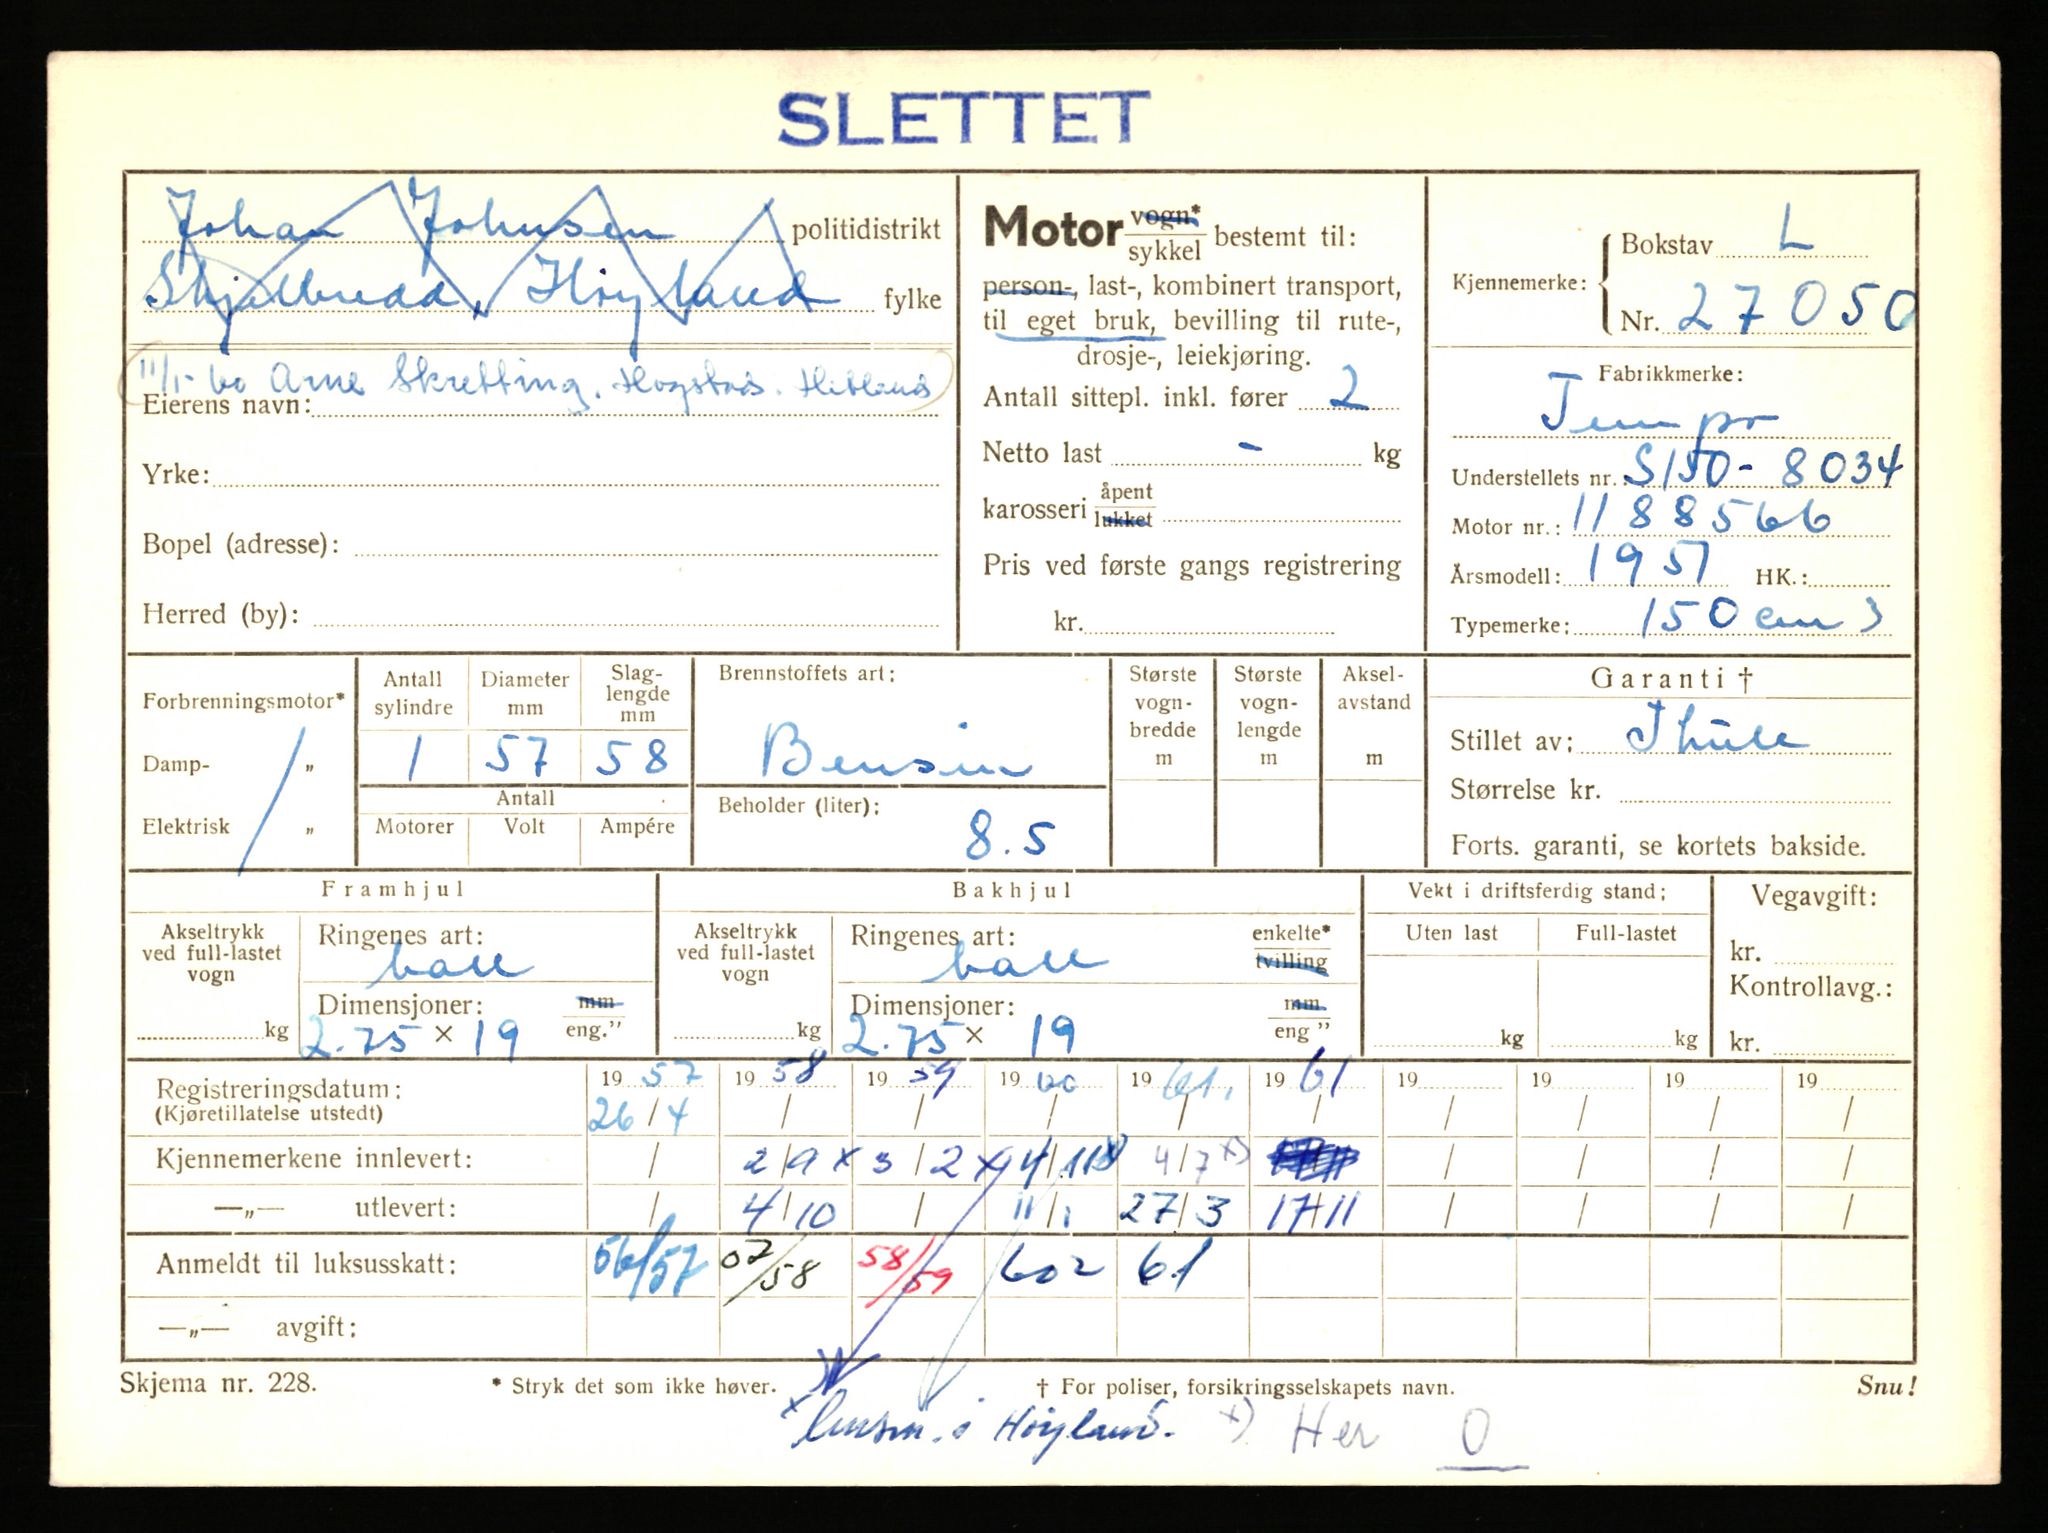 SLETTET
Johan Johnsen politidistrikt
Skjelbredd, Høyland fylke
11/1-60 Arne Skretting. Hogstad. Hetland
Eierens navn:
Yrke:
Bopel (adresse):
Herred (by):
Motor vogn* / sykkel bestemt til:
person-, last-, kombinert transport,
til eget bruk, bevilling til rute-,
drosje-, leiekjøring.
Antall sittepl. inkl. fører 2
Netto last - kg
karosseri åpent / lukket
Pris ved første gangs registrering
kr.
Kjennemerke: Bokstav L
Nr. 27050
Fabrikkmerke:
Tempo
Understellets nr.: S150-8034
Motor nr.: 1188566
Årsmodell: 1957 HK.:
Typemerke: 150 cm3
Forbrenningsmotor*
Damp- „
Elektrisk „
Antall sylindre Diameter mm Slaglengde mm
1 57 58
Antall
Motorer Volt Ampére
Brennstoffets art:
Bensin
Beholder (liter):
8.5
Største vogn-bredde m
Største vogn-lengde m
Aksel-avstand m
Garanti †
Stillet av: Thule
Størrelse kr.
Forts. garanti, se kortets bakside.
Framhjul
Akseltrykk ved full-lastet vogn
kg
Ringenes art:
ball
Dimensjoner: mm / eng.”
2.75 × 19
Bakhjul
Akseltrykk ved full-lastet vogn
kg
Ringenes art: enkelte* / tvilling
ball
Dimensjoner: mm / eng ”
2.75 × 19
Vekt i driftsferdig stand:
Uten last Full-lastet
kg kg
Vegavgift:
kr.
Kontrollavg.:
kr.
Registreringsdatum: 19 57 19 58 19 59 19 60 19 61. 19 61 19 19 19 19
(Kjøretillatelse utstedt) 26/4 / / / / / / / / /
Kjennemerkene innlevert: / 2/9 x 3/2 x 4/11 x) 4/7 x) / / / /
—„— utlevert: / 4/10 / 11/1 27/3 17/11 / / / /
Anmeldt til luksusskatt: 56/57 /58 58/59 602 61
—„— avgift:
Skjema nr. 228. * Stryk det som ikke høver. † For poliser, forsikringsselskapets navn. Snu!
x lensm. i Høyland. x) Her O